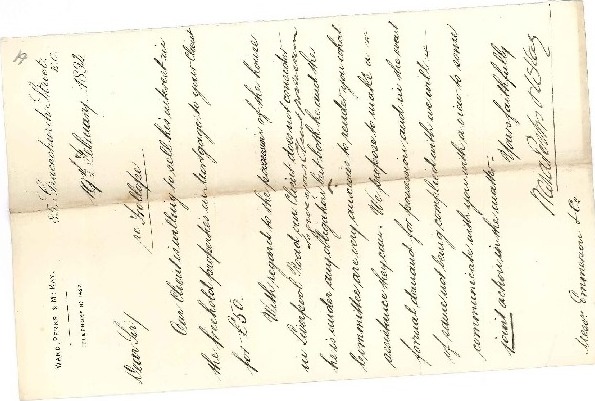 WARD, PERKS & McKAY.
TELEPHONE No 1497
85, Gracechurch Street,
E.C.
19th February 1892
Dear Sirs
re Tollope
Our Client is willing to sell his interest in
the freehold properties in mortgage to your Client
for £50.
With regard to the possession of the house
in Liverpool Road our Client does not consider
he is under any obligation but both he and the
Committee are very anxious to render you what
assistance they can. We propose to make a
formal demand for possession and in the event
of same not being complied with we will
communicate with you with a view to some
joint action in the matter.
Yours faithfully
Ward Perks & McKay
Messrs Emmerson & Co